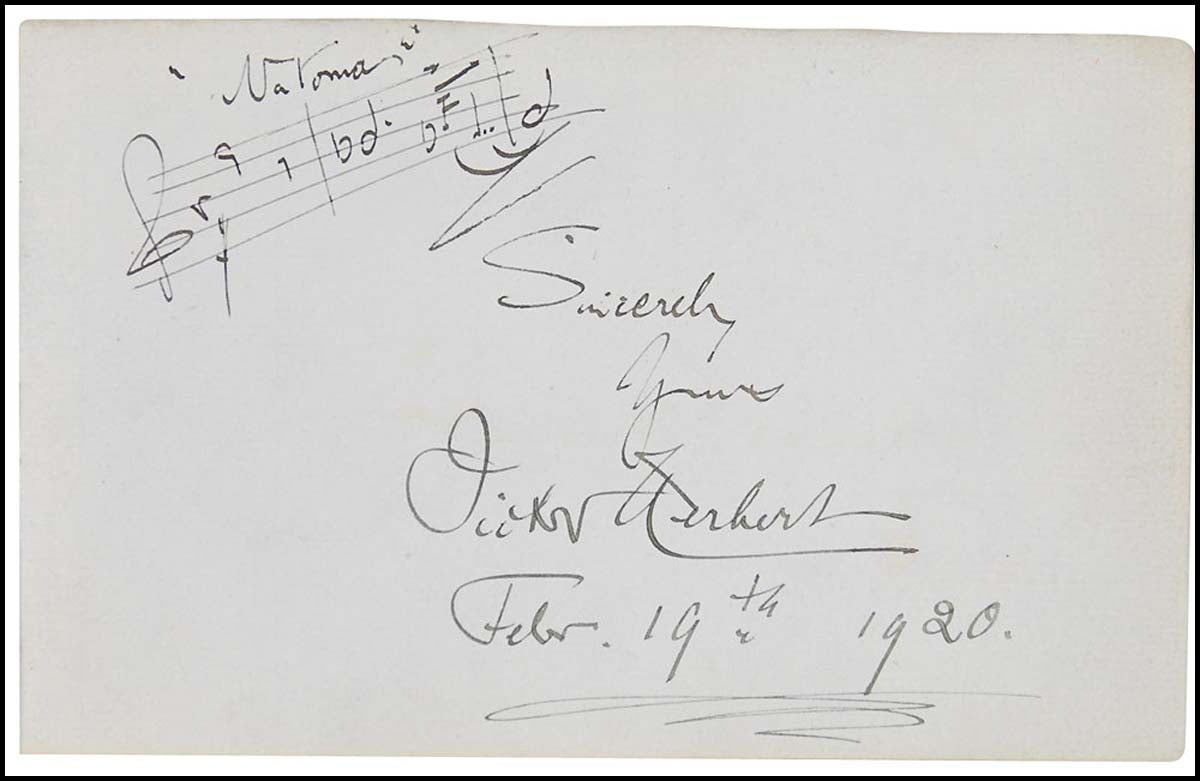 "Natoma"
Sincerely
Yours
Victor Herbert
Febr. 19th 1920.